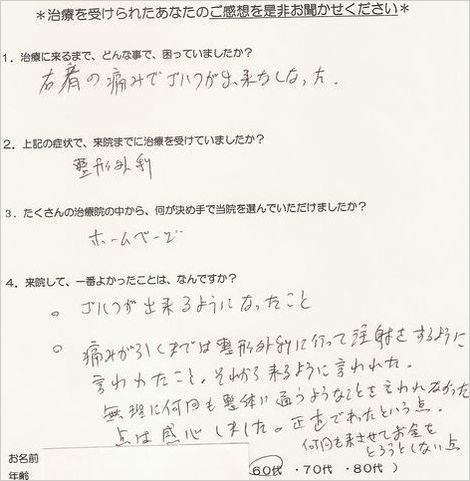 ＊治療を受けられたあなたのご感想を是非お聞かせください＊
1．治療に来るまで、どんな事で、困っていましたか？
右肩の痛みでゴルフが出来なくなった．
2．上記の症状で、来院までに治療を受けていましたか？
整形外科
3．たくさんの治療院の中から、何が決め手で当院を選んでいただけましたか？
ホームページ
4．来院して、一番よかったことは、なんですか？
○ ゴルフが出来るようになったこと
○ 痛みが引くまでは整形外科に行って注射をするように
言われたこと。それから来るように言われた．
無理に何回も整体に通うようなことを言われなかった
点は感心しました。正直であったという点．
何回も来させてお金を
とろうとしない点
お名前
年齢 60代 ・70代 ・80代 ）